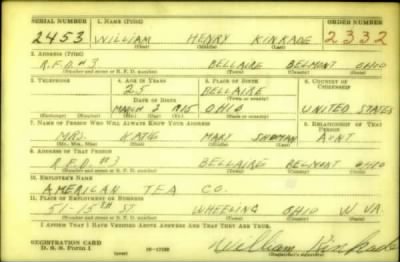 SERIAL NUMBER 1. NAME (Print) ORDER NUMBER
2453 WILLIAM HENRY KINKADE 2332
(First) (Middle) (Last)
2. ADDRESS (Print)
R.F.D. #3 BELLAIRE BELMONT OHIO
(Number and street or R. F. D. number) (Town) (County) (State)
3. TELEPHONE 4. AGE IN YEARS 5. PLACE OF BIRTH 6. COUNTRY OF CITIZENSHIP
25 BELLAIRE
DATE OF BIRTH (Town or county)
MARCH 2 1915 OHIO UNITED STATES
(Exchange) (Number) (Mo.) (Day) (Yr.) (State or country)
7. NAME OF PERSON WHO WILL ALWAYS KNOW YOUR ADDRESS 8. RELATIONSHIP OF THAT PERSON
MRS. MARY AUNT
(Mr., Mrs., Miss) (First) (Middle) (Last)
9. ADDRESS OF THAT PERSON
R.F.D. #3 BELLAIRE BELMONT OHIO
(Number and street or R. F. D. number) (Town) (County) (State)
10. EMPLOYER'S NAME
AMERICAN TEA CO.
11. PLACE OF EMPLOYMENT OR BUSINESS
51-15TH ST. WHEELING OHIO W. VA.
(Number and street or R. F. D. number) (Town) (County) (State)
I AFFIRM THAT I HAVE VERIFIED ABOVE ANSWERS AND THAT THEY ARE TRUE.
REGISTRATION CARD
D. S. S. Form 1 William Kinkade